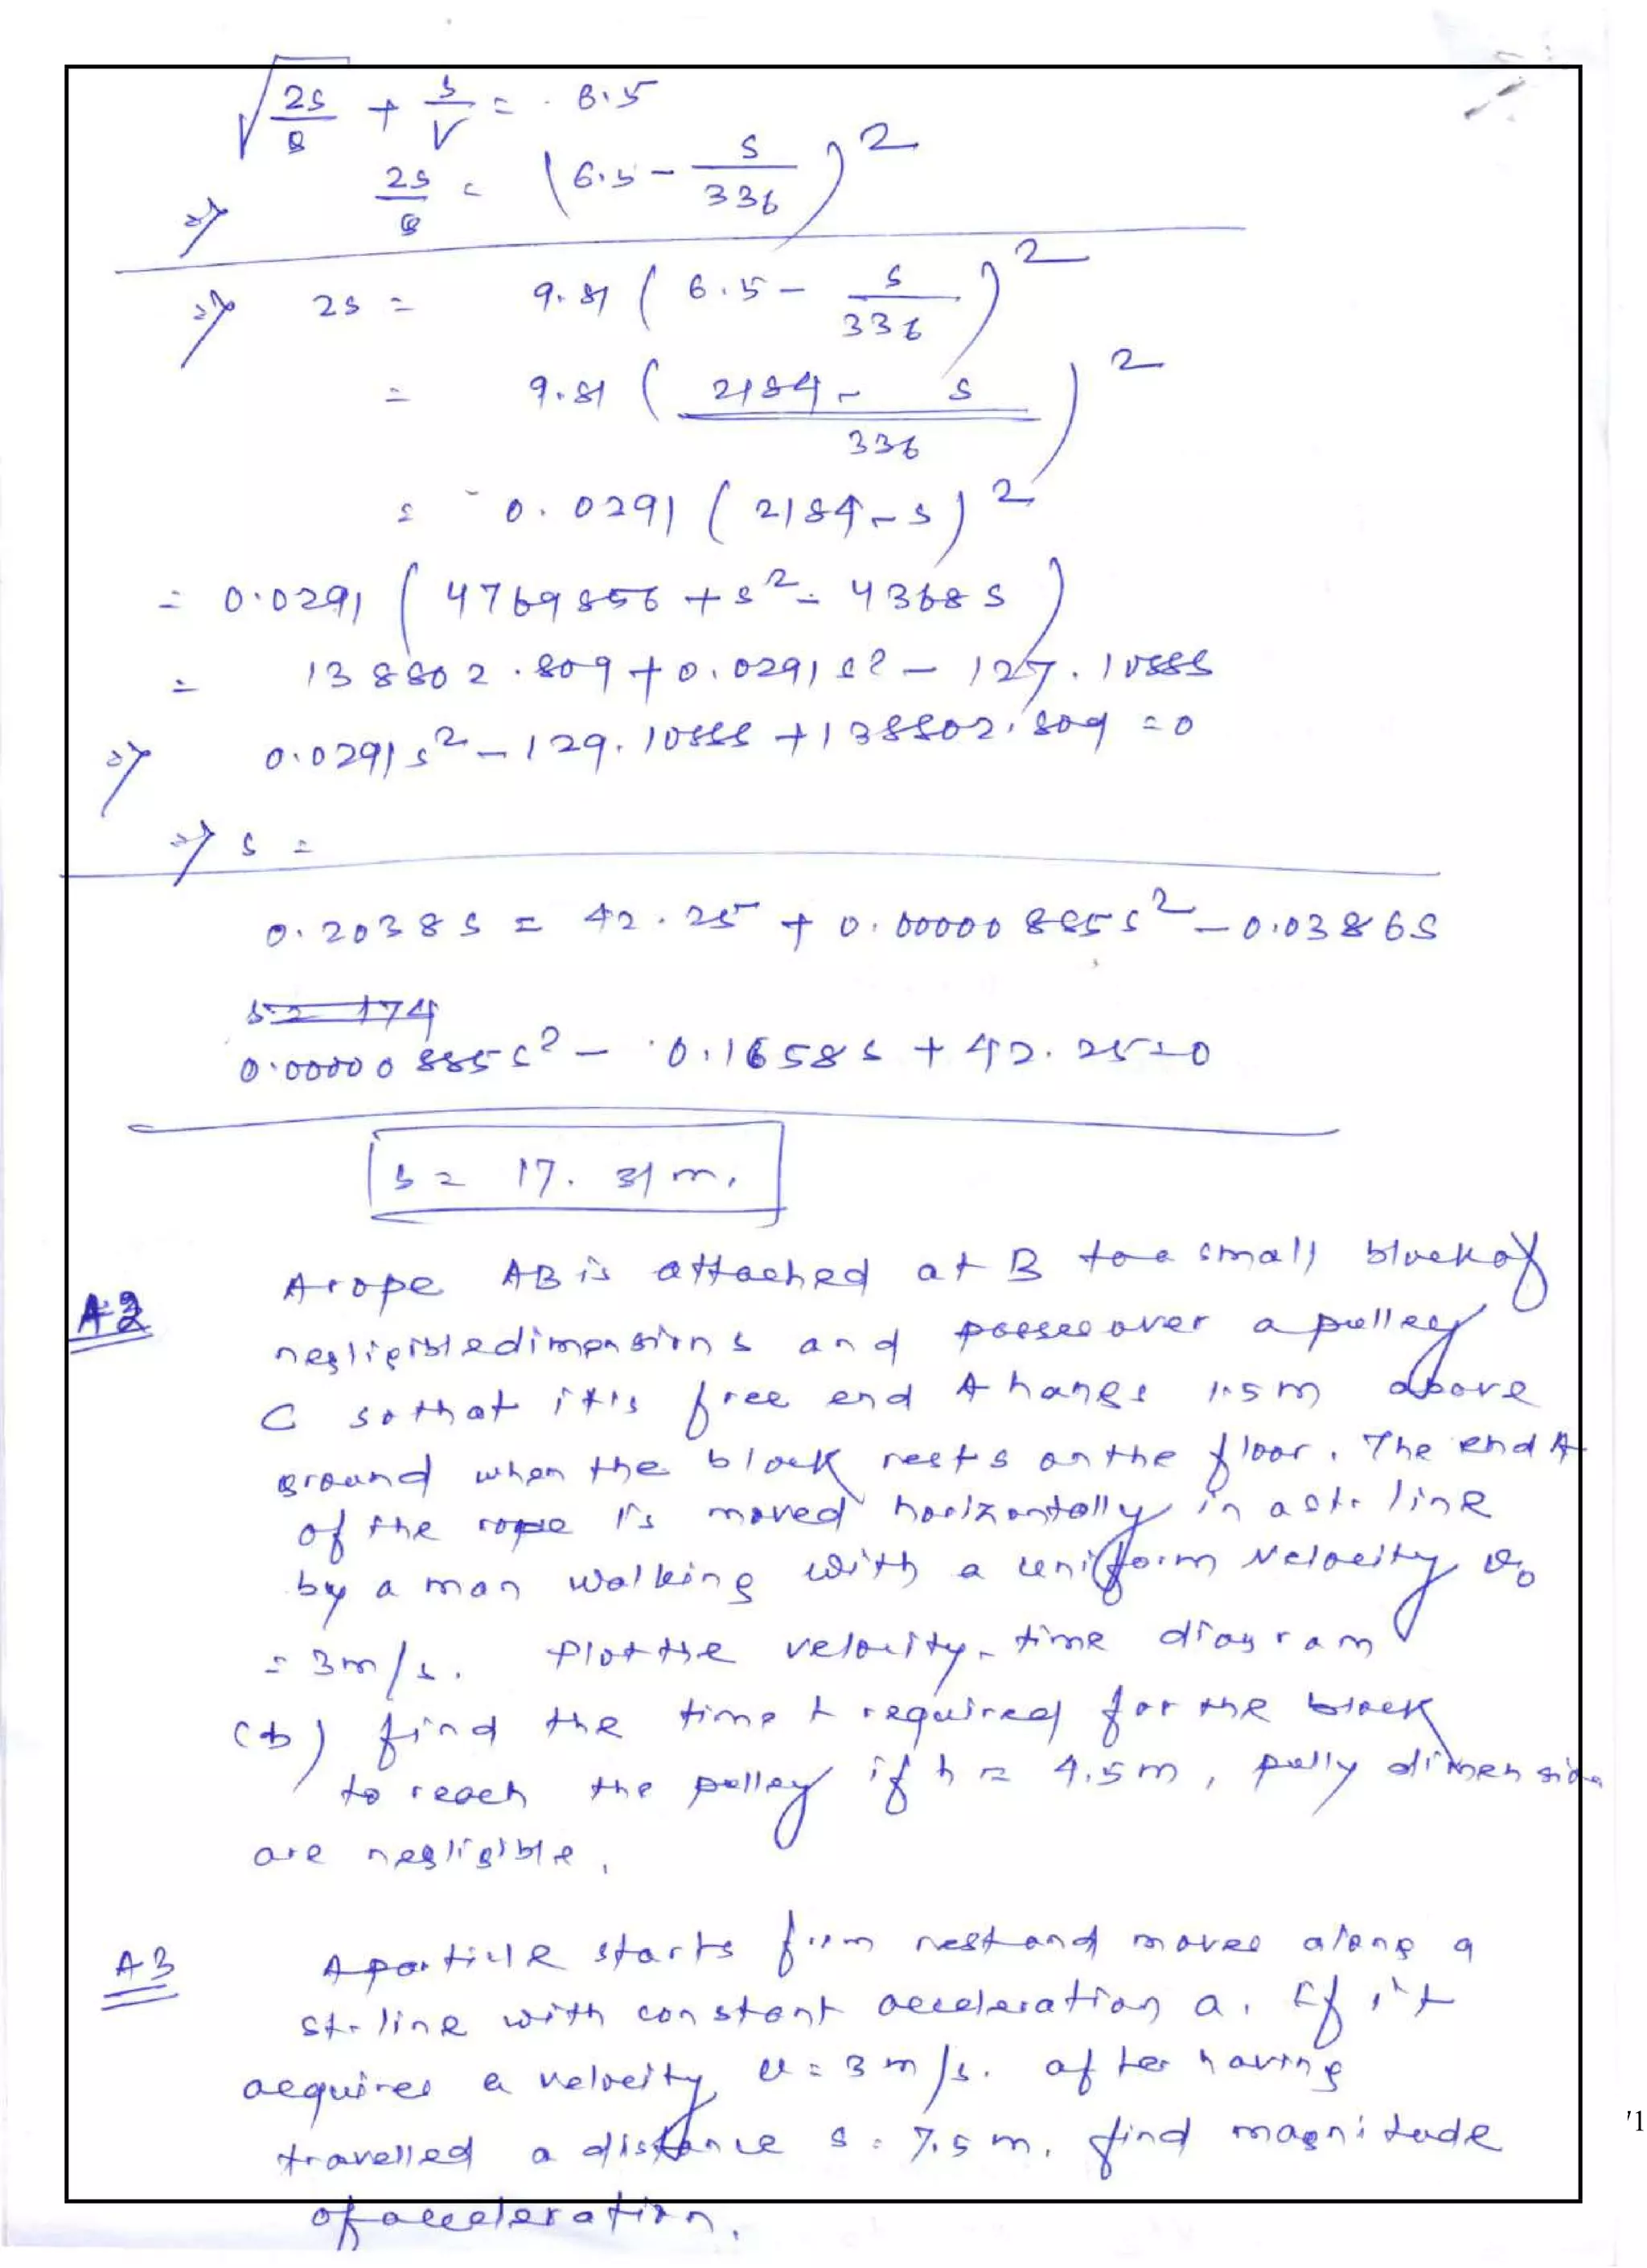 √(2s/g) + s/v = 6.5
⇒ 2s/g = (6.5 - s/336)²
⇒ 2s = 9.81 (6.5 - s/336)²
= 9.81 ((2184 - s)/336)²
= 0.0291 (2184 - s)²
= 0.0291 (4769856 + s² - 4368s)
= 138802.809 + 0.0291s² - 127.1088s
⇒ 0.0291s² - 129.1088s + 138802.809 = 0
⇒ s =
0.2038s = 42.25 + 0.00000885s² - 0.0386s
s= 174
0.00000885s² - 0.1658s + 42.25=0
s = 17.31 m.
A2 A rope AB is attached at B to a small block of
negligible dimensions and passes over a pulley
C so that it's free end A hangs 1.5m above
ground when the block rests on the floor. The end A
of the rope is moved horizontally in a st. line
by a man walking with a uniform velocity v₀
= 3m/s. Plot the velocity-time diagram
(b) find the time t required for the block
to reach the pulley if h = 4.5m, pully dimension
are negligible.
A3 A particle starts from rest and moves along a
st. line with constant acceleration a. If it
acquires a velocity u = 3 m/s. after having
travelled a distance s = 7.5 m. find magnitude
of acceleration.
71